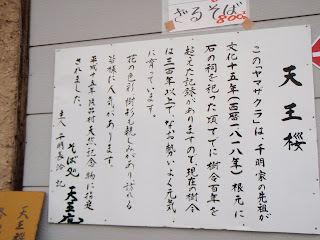 ざるそば
800
天王桜
この「ヤマザクラ」は、千明家の先祖が
文化十五年(西暦一八一八年)根元に
石の祠を祀った頃すでに樹令百年を
越えた記録がありますので現在の樹令
は三百年以上で、なお勢いよく元気
に育っています。
花の色彩、樹形も親しみがあり訪れる
皆様に人気があります。
平成十五年片品村天然記念物に指定
されました。
そば処 天王庵
主人 千明長治 記
天王